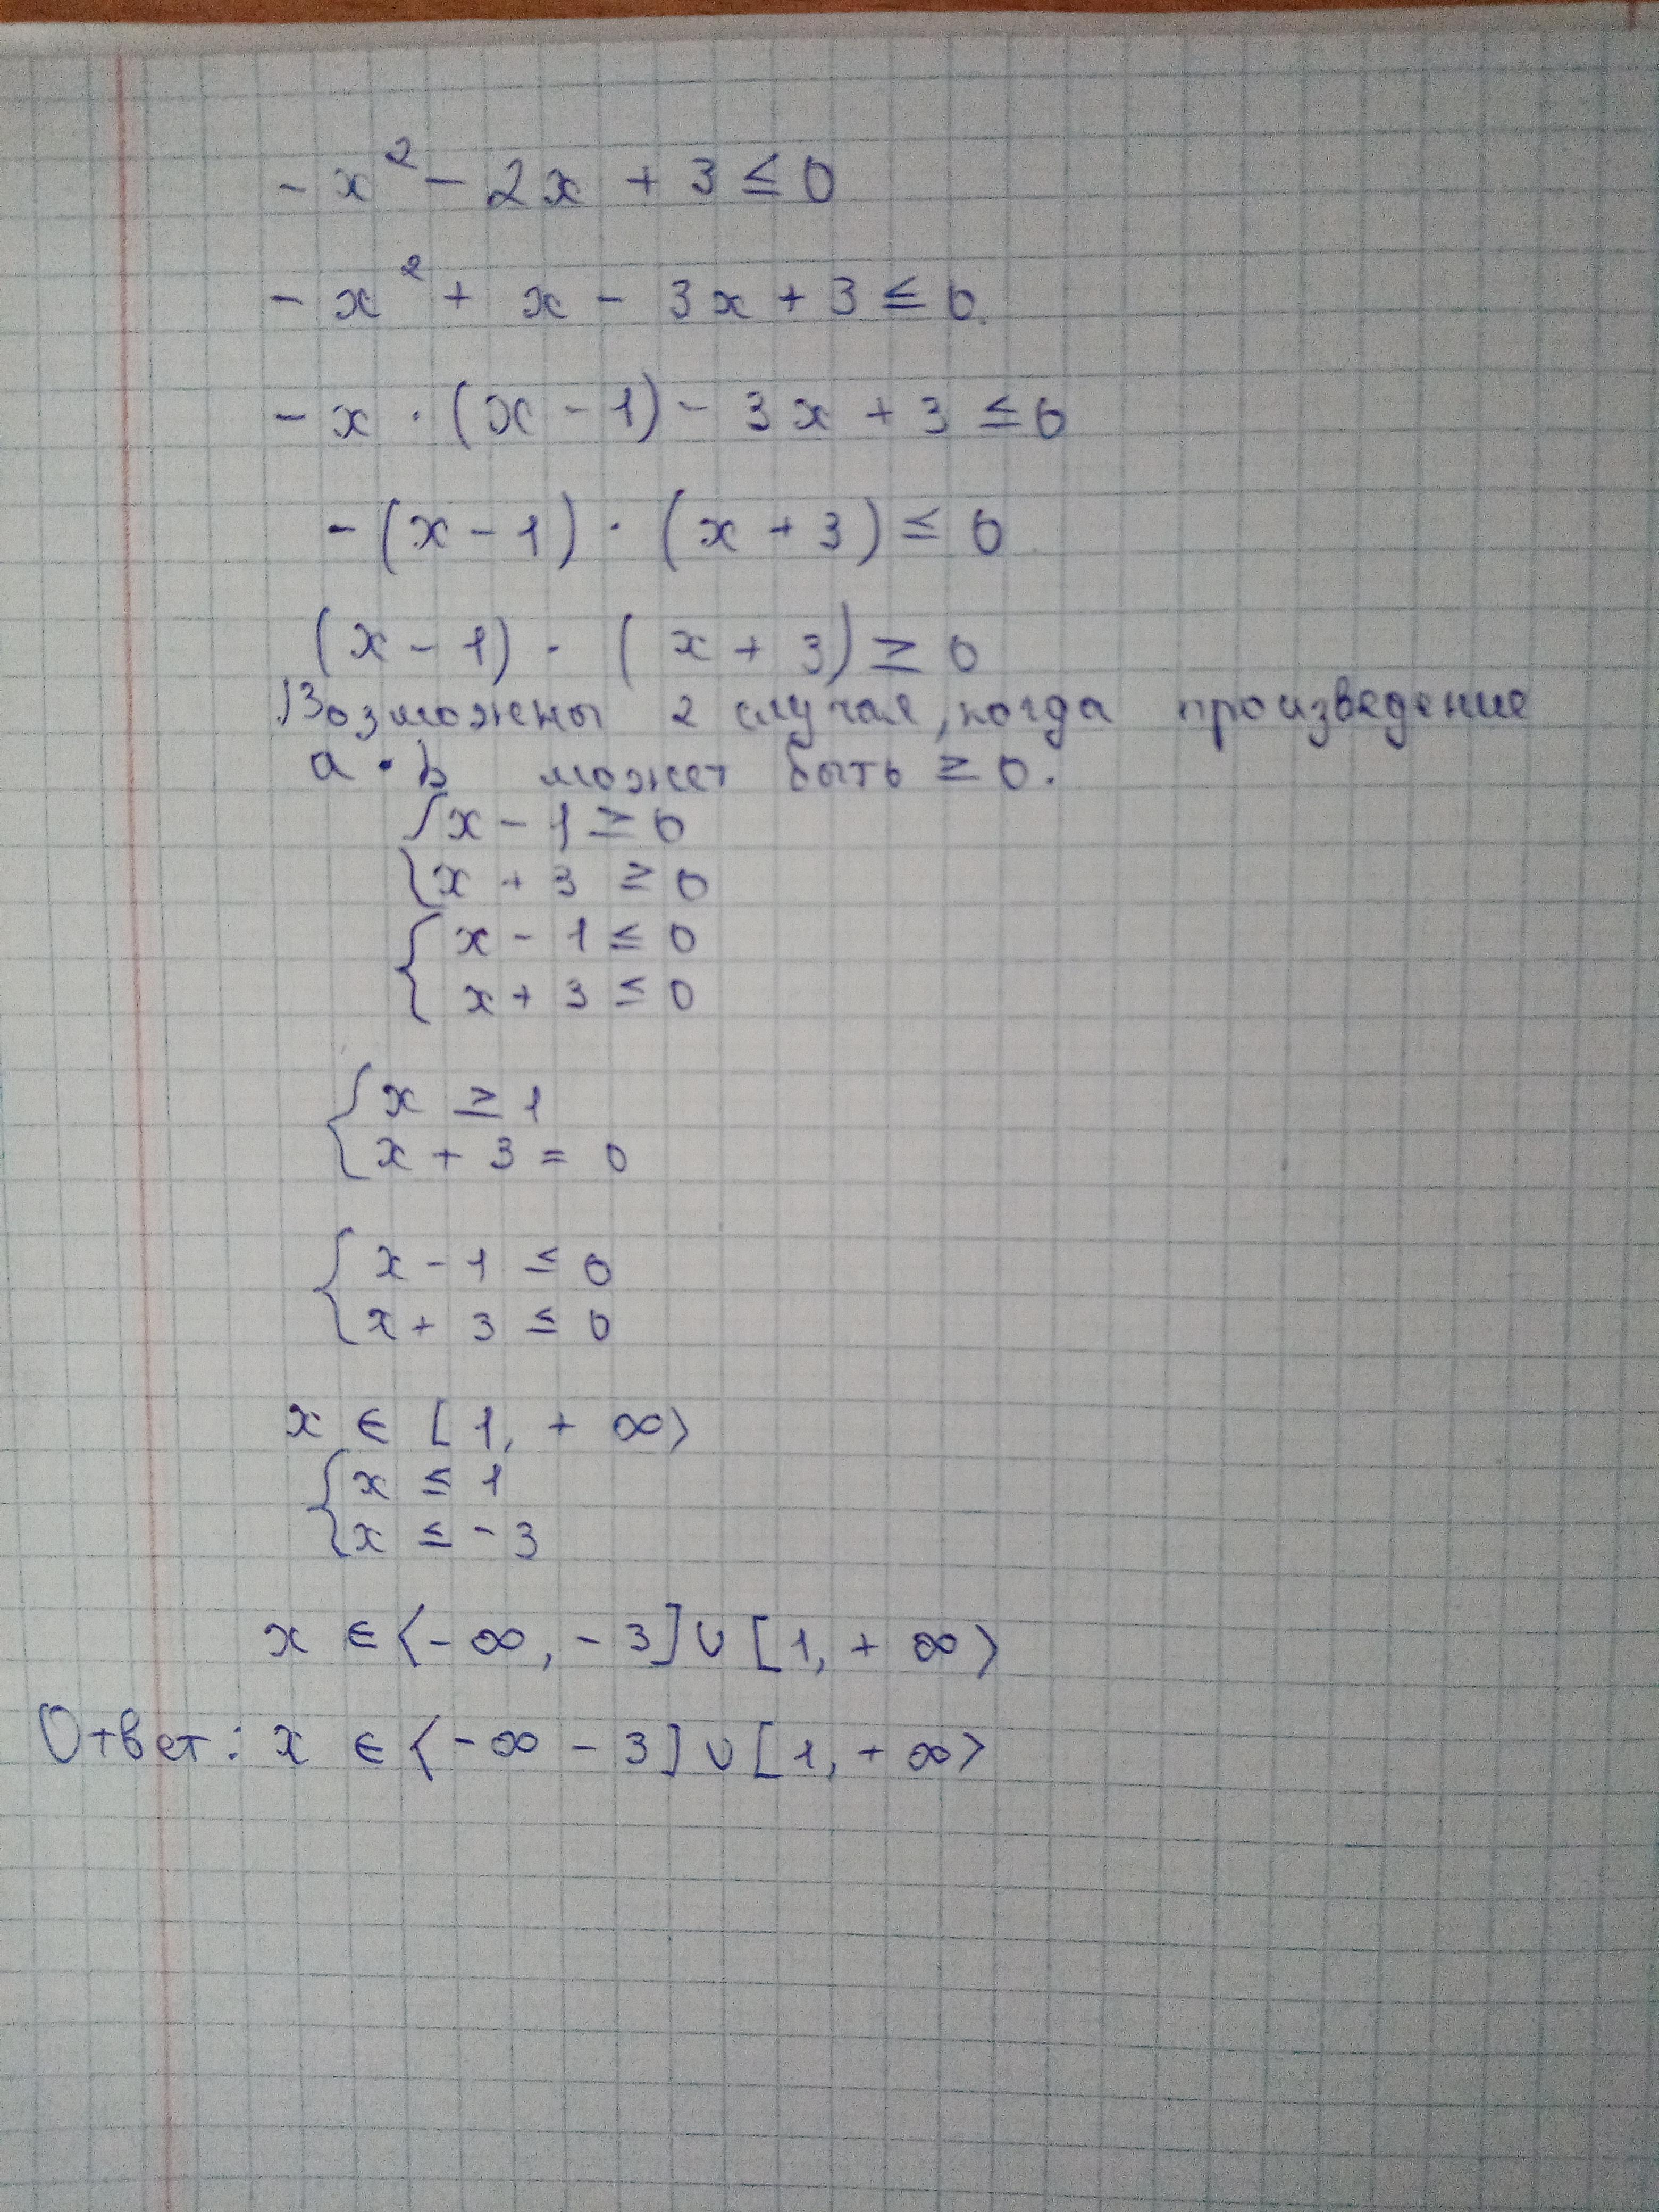 - x² - 2x + 3 ≤ 0
- x² + x - 3x + 3 ≤ 0.
- x · (x - 1) - 3x + 3 ≤ 0
- (x - 1) · (x + 3) ≤ 0
(x - 1) · (x + 3) ≥ 0
Возможны 2 случая, когда произведение
a · b может быть ≥ 0.
{ x - 1 ≥ 0
{ x + 3 ≥ 0
{ x - 1 ≤ 0
{ x + 3 ≤ 0
{ x ≥ 1
{ x + 3 = 0
{ x - 1 ≤ 0
{ x + 3 ≤ 0
x ∈ [1, + ∞⟩
{ x ≤ 1
{ x ≤ - 3
x ∈ ⟨- ∞, - 3] ∪ [1, + ∞⟩
Ответ: x ∈ ⟨- ∞ - 3] ∪ [1, + ∞⟩